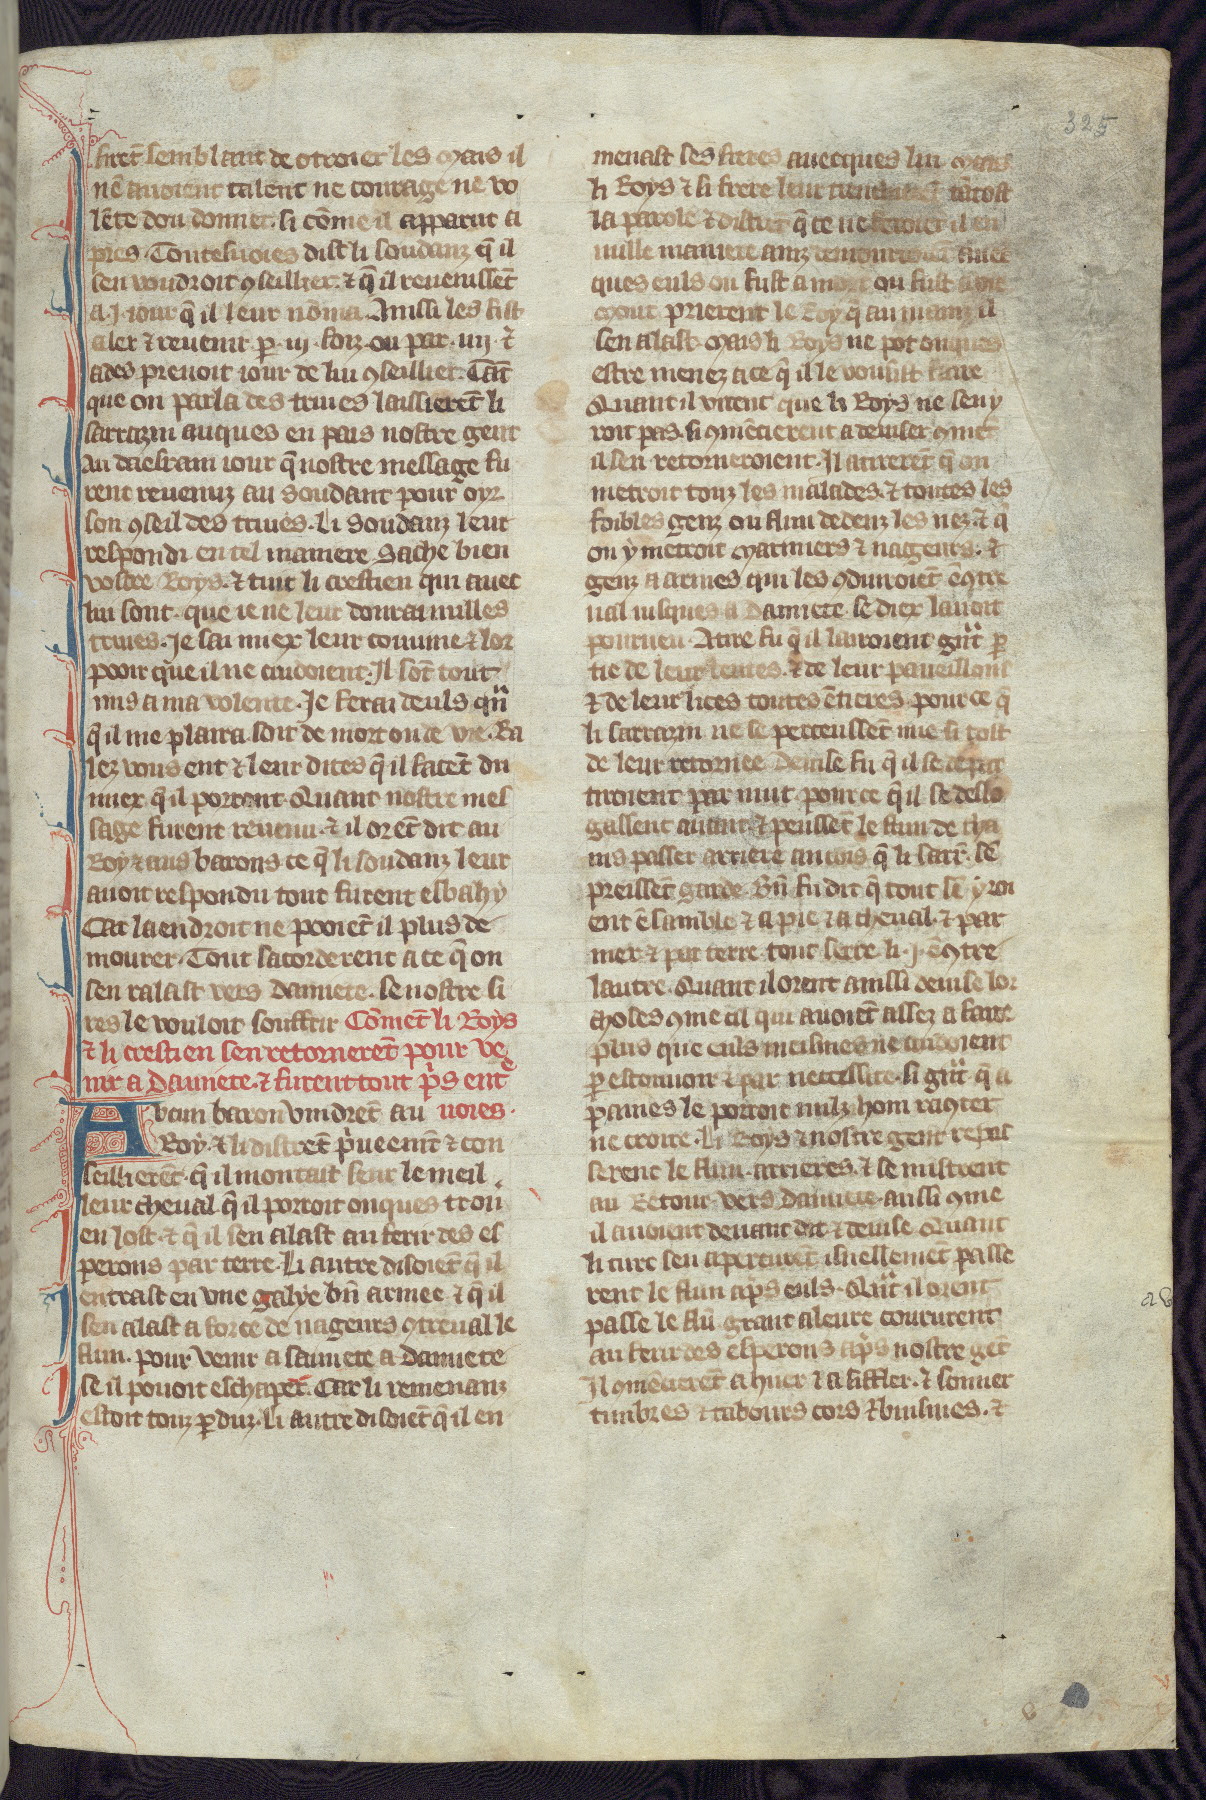 325
firēt semblant de otroier les Mais il
nē auoient talent ne courage ne vo
lēte dou donner. si cōme il apparut a
pres. Toutesuoies dist li soudanz q̄ il
sen voudroit ꝯseillier. ⁊ q̄ il reuenissēt
a .J. iour q̄ il leur nōma. Aussi les fist
aler ⁊ reuenir p̱ .iij. foiz ou par .iiij. ⁊
ades prenoit iour de lui ꝯseillier. Tāt
que on parla des triues laissierēt li
sarrazin auques en pais nostre gent
Au daesrain iour q̄ nostre message fu
rent reuenuz au Soudant pour oyr
son ꝯseil des triues. Li Soudanz leur
respondi en tel maniere. Sache bien
vostre Roys. ⁊ tuit li crestien qui auec
lui sont. que ie ne leur donrai nulles
triues. Je sai miex leur couuine ⁊ lor
pooir que il ne cuidoient. Il sōt tout
mis a ma volente. Je ferai deuls qn̄
q̄ il me plaira. soit de mort ou de vie. Ra
lez vous ent ⁊ leur dites q̄ il facēt du
miex q̄ il porront. Quant nostre mes
sage furent reuenu. ⁊ il orēt dit au
Roy ⁊ aus barons ce q̄ li soudanz leur
auoit respondu tout furent esbahy
Car la endroit ne pooiēt il plus de
mourer. Tout sacorderent a ce q̄ on
sen ralast vers damiete. se nostre si
res le vouloit souffrir Cōmēt li Roys
⁊ li crestien sen retornerēt pour ve
nir a Damiete. ⁊ furent tout p̱s ent
Aucun baron vindrēt au uoies.
Roy. ⁊ li distrēt p̱ueemēt ⁊ con
seillierēt. q̄ il montast seur le meil
leur cheual q̄ il porroit onques trou
en lost. ⁊ q̄ il sen alast au ferir des es
perons par terre. Li autre disoiēt q̄ il
entrast en vne galye bn̄ armee ⁊ q̄ il
sen alast a force de nageurs ꝯtreual le
flun. pour venir a sauuete a Damiete
se il pouoit eschaper. Car li remenanz
estoit touz p̱duz. Li autre disoiēt q̄ il en
menast ses freres auecques lui Mais
li Roys ⁊ si frere leur tantost
la parole ⁊ distrēt q̄ ce ne feroiēt il en
nulle maniere ainz auec
ques euls ou fust a mort ou fust a vie
Mout prierent le Roy q̄ au mainz il
sen alast. Mais li Roys ne pot onques
estre menez a ce q̄ il le vousist faire
Quant il virent que li Roys ne sen y
roit pas. si ꝯmēcierent a deuiser ꝯmēt
il sen retorneroient. Il atirerēt q̄ on
metroit touz les malades. ⁊ toutes les
foibles genz ou flun dedenz les nez. ⁊ q̄
on y metroit Mariniers ⁊ nageurs. ⁊
genz a armes qui les ꝯduiroiēt ꝯtre
ual iusques a Damiete. se diex lauoit
pourueu. Atire fu q̄ il lairoient gr̄t p̱
tie de leur tentes. ⁊ de leur paueillons
⁊ de leur lices toutes ētieres. pour ce q̄
li sarrazin ne se perceussēt mie si tost
de leur retornee. Deuise fu q̄ il se depar
tiroient par nuit. pour ce q̄ il se deslo
gassent auant ⁊ peussēt le flun de tha
nis passer arriere ancois q̄ li sarr. sē
preissēt garde. Bn̄ fu dit q̄ tout sē yroi
ent ēsamble ⁊ a pie ⁊ a cheual. ⁊ par
mer ⁊ par terre. tout serre li .J. ēꝯtre
lautre. Quant il orent aussi deuise lor
choses ꝯme cil qui auoiēt assez a faire
plus que euls meismes ne cuidoient
p̱ estouuoir ⁊ par necessite. si gr̄t q̄ a
paines le porroit nulz hom raꝯter
ne croire. Li Roys ⁊ nostre gent repas
serent le flun arrieres. ⁊ se mistrent
au Retour vers Damiete. aussi ꝯme
il auoient deuant dit ⁊ deuise. Quant
li turc sen aperceurēt isnellemēt passe
rent le flun ap̱s euls. Qn̄t il orent
passe le flū. grant aleure coururent
au ferir des esperons ap̱s nostre gēt
Il ꝯmēcierēt a huer ⁊ a siffler. ⁊ sonner
timbres ⁊ tabours cors ⁊ buisines. ⁊